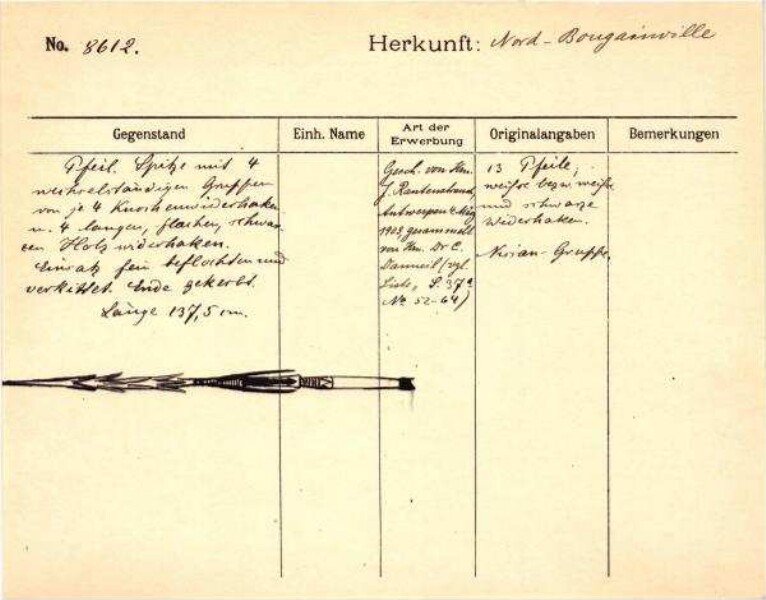 No. 8612.
Herkunft: Nord-Bougainville
Gegenstand
Einh. Name
Art der
Erwerbung
Originalangaben
Bemerkungen
Pfeil. Spitze mit 4
wechselständigen Gruppen
von je 4 Knochenwiderhaken
u. 4 langen, flachen, schwar-
zen Holzwiderhaken.
Einsatz fein beflochten und
verkittet. Ende gekerbt.
Länge 137,5 cm.
Gesch. von Hrn.
J.
Antwerpen 4. März
1908, gesammelt
von Hrn. Dr C.
Danneil (vgl.
Liste, S. 37a
No 52-64)
13 Pfeile,
weiße bezw. weiße
und schwarze
Widerhaken.
Nisian-Gruppe.